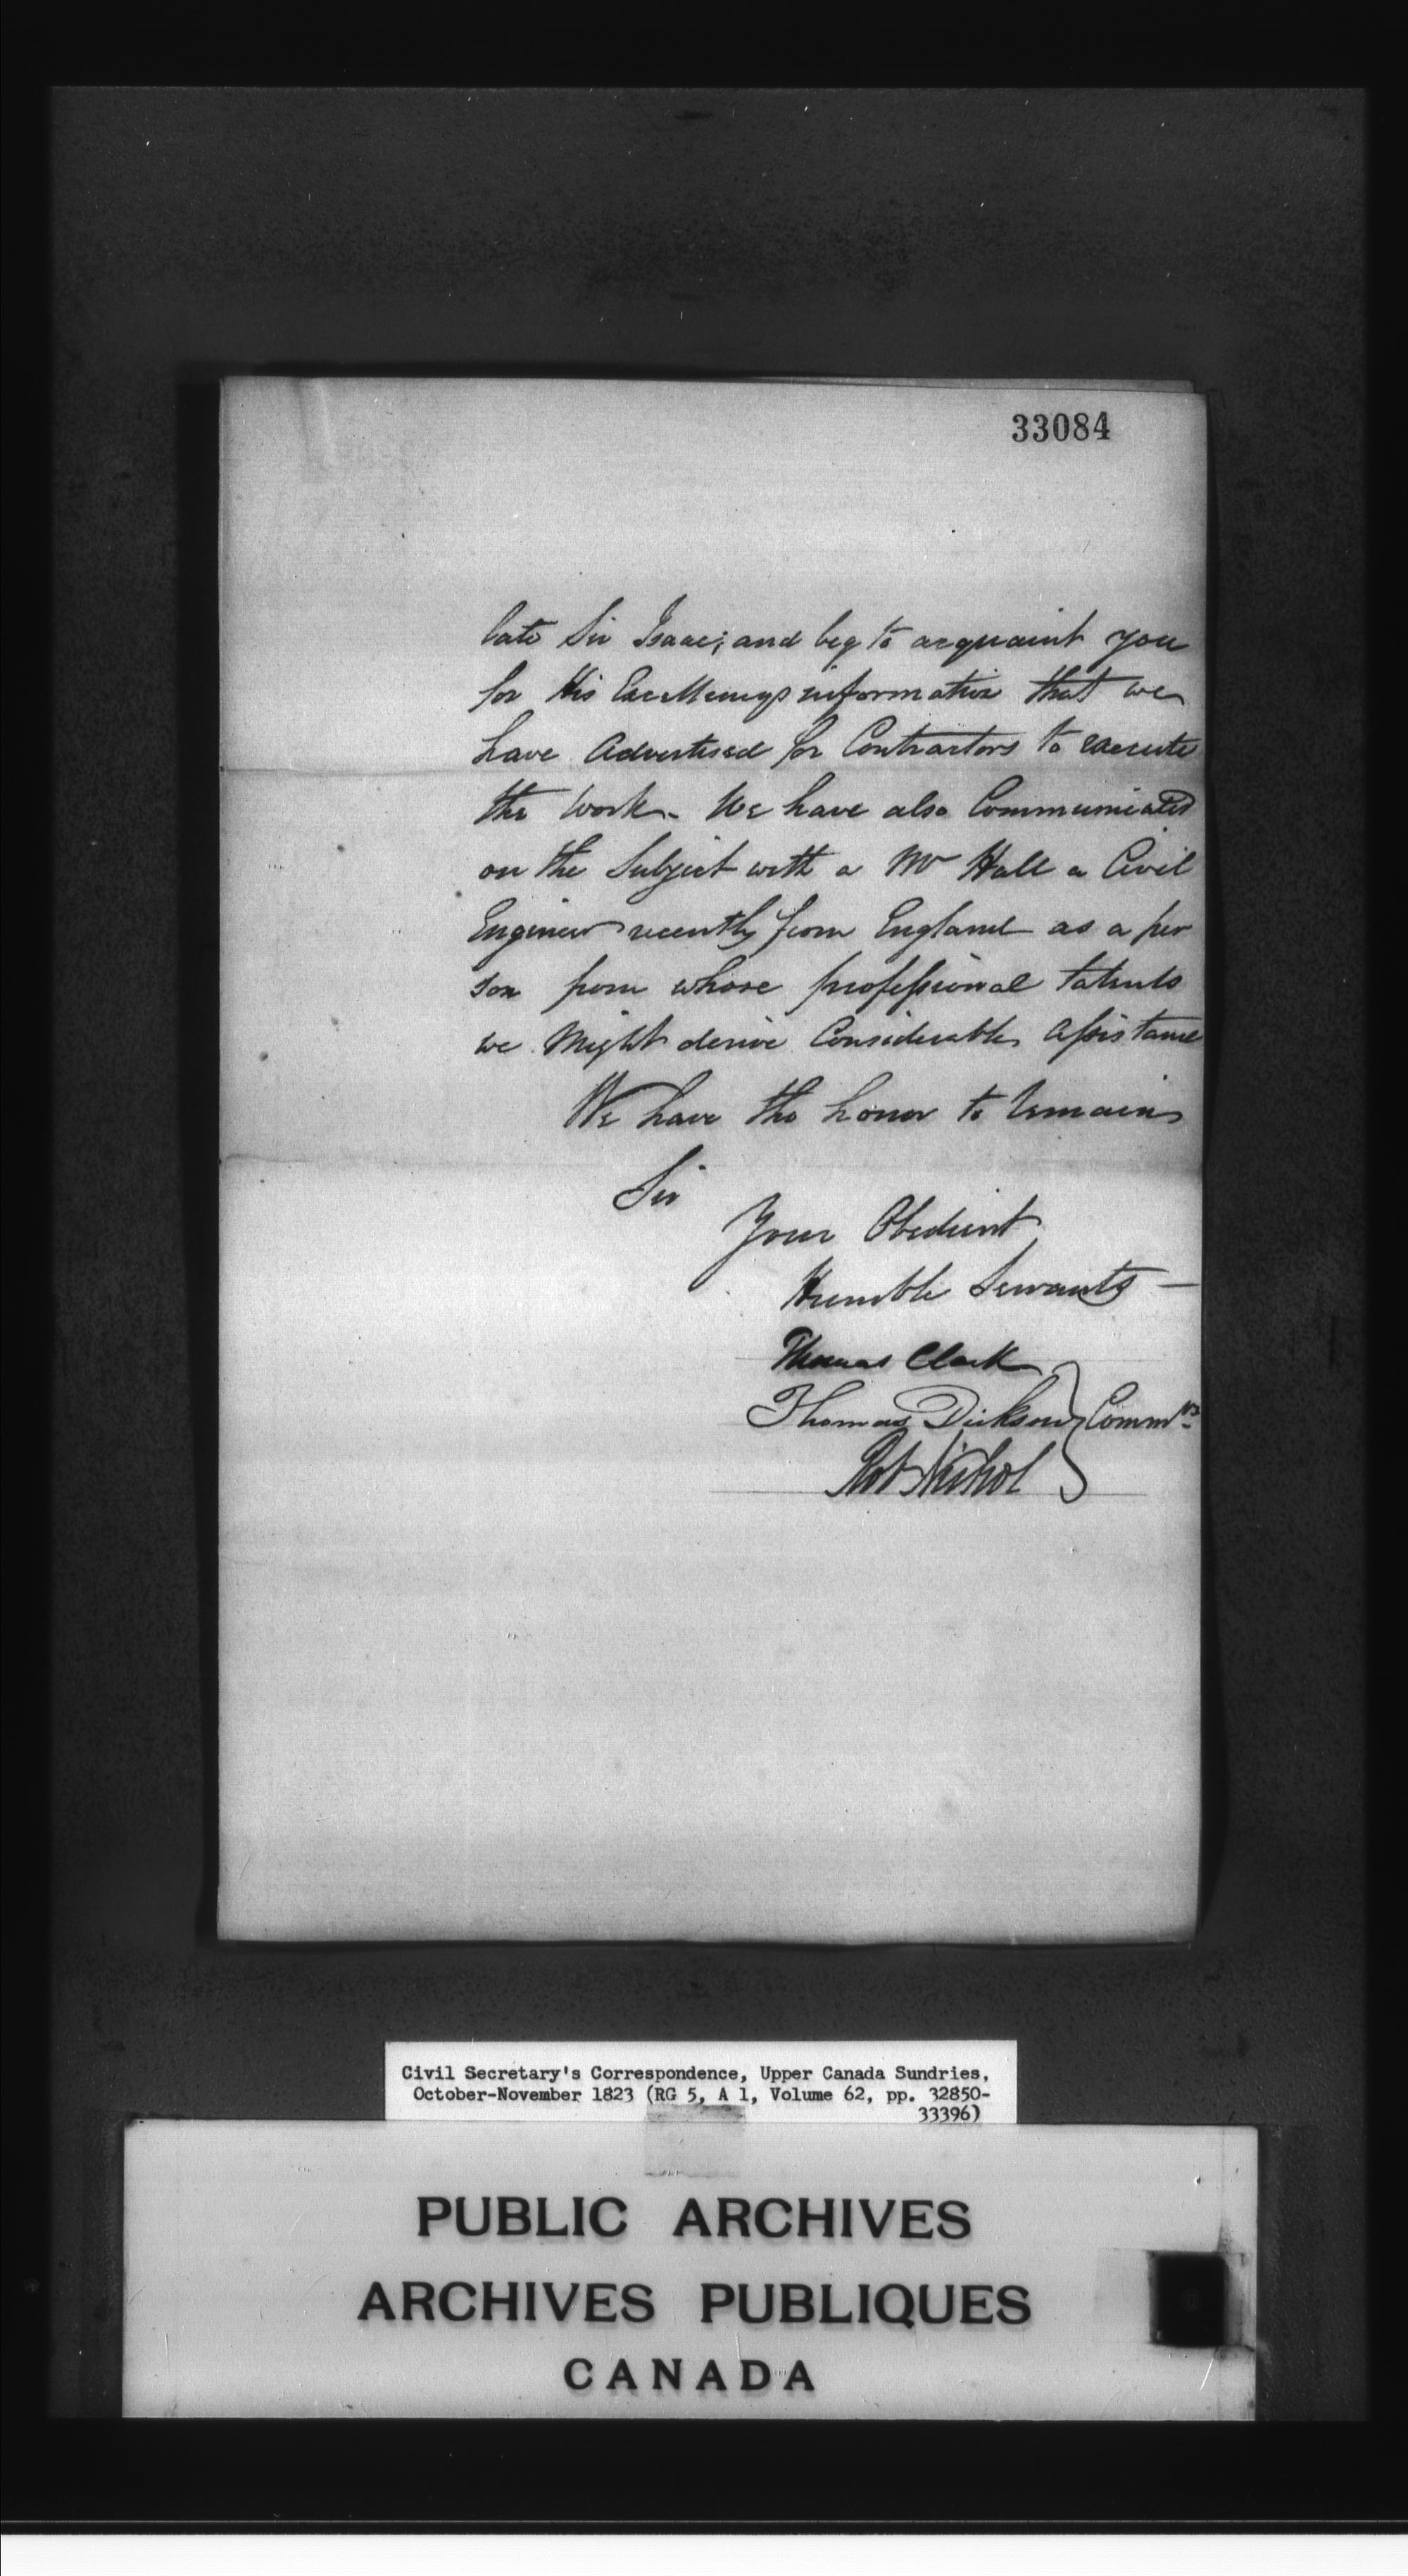 33084
late Sir Isaac; and beg to acquaint you
for His Excellency's information that we
have Advertised for Contractors to execute
the Work. We have also Communicated
on the Subject with a Mr Hall a Civil
Engineer recently from England as a per
son from whose professional talents
we Might derive Considerable Assistance
We have the honor to Remain
Sir
Your Obedient
Humble Servants —
Thomas Clark
Thomas Dickson } Commrs
Rot Nichol
Civil Secretary's Correspondence, Upper Canada Sundries,
October-November 1823 (RG 5, A 1, Volume 62, pp. 32850-
33396)
PUBLIC ARCHIVES
ARCHIVES PUBLIQUES
CANADA